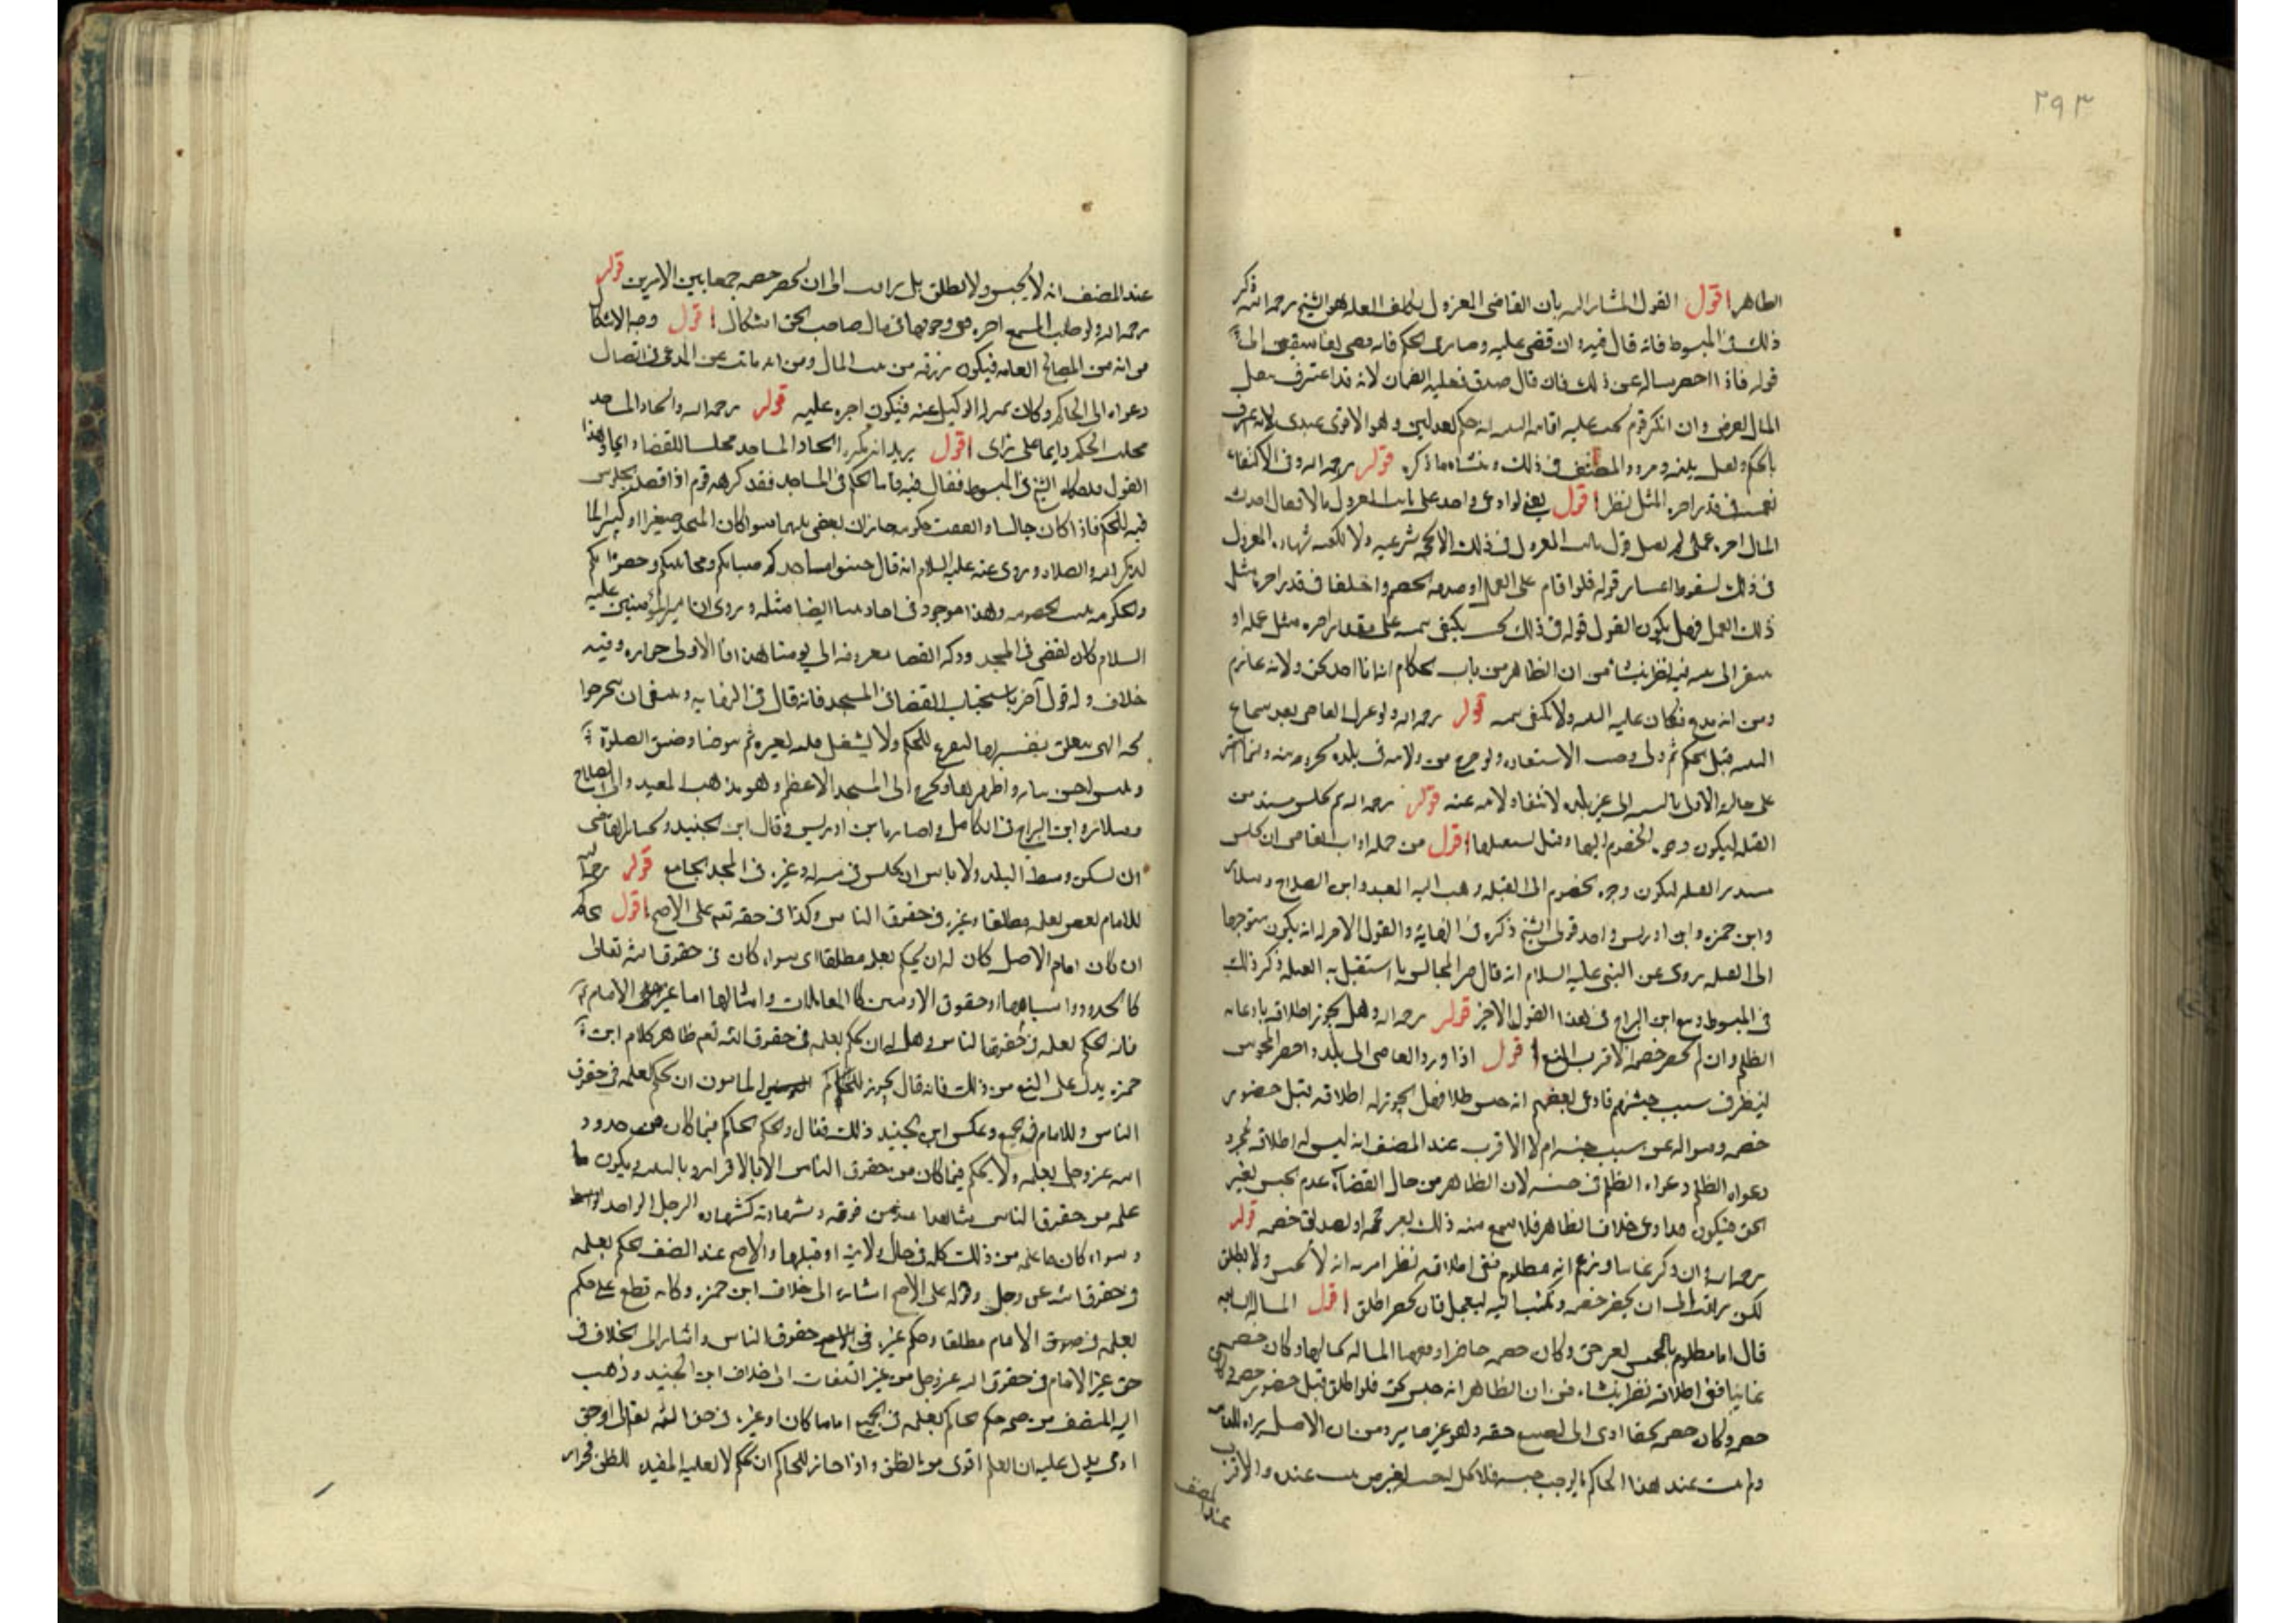 ٢٩٣
الظاهر اقول القول المشار اليه بان القاضى المعزول يكلف البينة هو الشيخ رحمه الله ذكر
ذلك فى المبسوط فانه قال فيه وان قضى عليه
قوله فاذا احضر ساله عن ذلك فان قال صدق فعليه الضمان لانه قد اعترف
المال لعوض وان انكر قوم عليه اقامة البينة انه حكم بعدلين وهو الاقوى عندى لانه
بالحكم و المصنف فى ذلك ومنشاه ما ذكره قوله رحمه الله وفى الاكتفاء
بيمينه فى قدر اجرة المثل نظر اقول يعنى لو ادعى واحد على نايب المعزول
المال اجرة عملى لم يقبل قول نايب المعزول فى ذلك الا بحجة شرعيه ولا تكفيه شهادة المعزول
فى ذلك لسقوط اعتبار قوله فلو اقام على العمل او صدقه الخصم واختلفا فى قدر اجرة مثل
ذلك العمل فهل يكون القول قوله فى ذلك يكتفى بيمينه على مقدار اجرة مثل عمله او
يفتقر الى بينة فيه نظر ينشا من ان الظاهر من باب الحكام ولانه غارم
ومن انه مدع فكان عليه البينه ولا تكفى يمينه قوله رحمه الله ولو عزل القاضى بعد سماع
البينه قبل الحكم ثم ولى وجب الاستعاده ولو خرج من ولايته فى بلده
على حاله الاول بالنسبه الى غير بلده لانتفاء ولايته عنه قوله رحمه الله ثم يجلس مستدبر
القبله ليكون وجوه الخصوم اليها وقيل يستقبلها اقول من جمله اداب القاضى ان يجلس
مستدبر القبله ليكون وجوه الخصوم الى القبله ذهب اليه المفيد وابن الصلاح وسلار
وابن حمزه وابن ادريس واحد قولى الشيخ ذكره فى النهاية والقول الاخر له انه يكون متوجها
الى القبله يروى عن النبى عليه السلام انه قال خير المجالس ما استقبل به القبله ذكر ذلك
فى المبسوط وتبع ابن البراج فى هذا القول الاخير قوله رحمه الله وهل يجوز اطلاقه بادعائه
الظلم وان لم يحضر خصمه الاقرب المنع اقول اذا ورد القاضى الى بلد واحضر المحبوس
لينظر فى سبب حبسهم فادعى بعضهم انه حبس ظلما فهل يجوز له اطلاقه قبل حضور
خصمه وسواله عن سبب حبسه ام لا الاقرب عند المصنف انه ليس له اطلاقه بمجرد
دعواه الظلم دعواه الظلم فى حبسه لان الظاهر من حال القضاة عدم الحبس بغير
الحق فيكون مدا دعى خلاف الظاهر فلا يسمع منه ذلك بغير حجة او تصديق خصمه قوله
رحمه الله وان ذكر غايبا وزعم انه مظلوم ففى اطلاقه نظر اقربه انه لا يحبس ولا يطلق
لكن يراقب الى ان يحضر خصمه ويكتب اليه ليعجل فان لم يحضر اطلق اقول المساله السابقه
قال انا مظلوم بالحبس لغير حق وكان خصمه حاضرا وفيهما المساله بحالها وكان خصمه
غايبا ففى اطلاقه نظر ينشاء من ان الظاهر انه حبس بحق فلو اطلق قبل حضور
خصمه وكان خصمه محقا ادى الى تضييع حقه وهو غير جايز ومن ان الاصل براءه
ولم يثبت عند هذا الحاكم ما يوجب حبسه عنده والاقرب
عند المصنف
عند المصنف انه لا يحبس ولا يطلق بل يراقب الى ان يحضر خصمه جمعا بين الامرين قوله
رحمه الله ولو طلب المسمع اجره فى وجوبها فى مال صاحب الحق اشكال اقول وجه الاشكال
من انه من المصالح العامه فيكون رزقه من بيت المال ومن انه نايب عن المدعى فى ايصال
دعواه الى الحاكم وكان بمنزله الوكيل عنه فيكون اجره عليه قوله رحمه الله واتخاذ المساجد
مجلس الحكم دايما على راى اقول يريد انه يكره اتخاذ المساجد مجلسا للقضاء دايما وهذا
القول الشيخ فى المبسوط فقال فيه فاما الحكم فى المساجد فقد كرهه قوم اذا قصد الجلوس
فيه للحكم فاذا كان جالسا واتفقت حكومه جاز ان يقضى بينهما سواء كان المسجد صغيرا او كبيرا
لذكر الله والصلاه وروى عنه عليه السلام انه قال جنبوا مساجدكم صبيانكم ومجانينكم وخصوماتكم
والحكومه وهذا موجود فى احاديثنا ايضا مثله وروى ان امير المؤمنين عليه
السلام كان يقضى فى المسجد ودكه القضا معروفه الى يومنا هذا فاذا الاولى جوازه وفيه
خلاف وله قول آخر باستحباب القضا فى المسجد فانه قال فى النهايه وينبغى ان يتنجز حوا
يجه التى يتعلق نفسه بها ليفرغ للحكم ولا يشتغل قلبه بغيره ثم يتوضا وضوء الصلوة
ويلبس احسن ثيابه واطهرها ويخرج الى المسجد الاعظم وهو مذهب المفيد وابى الصلاح
وسلار وابن البراج فى الكامل وابن ادريس وقال ابن الجنيد ويختار للقاضى
ان يسكن وسط البلد ولا باس ان يجلس فى منزله وغيره فى المسجد الجامع قوله رحمه الله
للامام يقضى بعلمه مطلقا وغيره فى حقوق الناس وكذا فى حقه تعم على الاصح اقول الحاكم
ان كان امام الاصل كان له ان يحكم بعلمه مطلقا اى سواء كان فى حقوق الله تعالى
كالحدود واشباهها او حقوق الادميين كالمعاملات وامثالها اما غير الامام
فانه يحكم بعلمه فى حقوق الناس وهل له ان يحكم بعلمه فى حقوق الله تعم ظاهر كلام ابن
حمزه يدل على المنع من ذلك فانه قال يجوز للحاكم المامون ان يحكم بعلمه فى حقوق
الناس وللامام فى الجميع وعكس ابن الجنيد ذلك فقال ويحكم الحاكم فيما كان من حدود
الله عز وجل بعلمه ولا يحكم فيما كان من حقوق الناس الا بالاقرار او بالبينه ويكون ما
علمه من حقوق الناس شاهدا عند من فوقه وشهادته كشهاده الرجل الواحد
وسواء كان ما علمه من ذلك كله فى حال ولايته او قبلها والاصح عند المصنف الحكم بعلمه
فى حقوق الله عز وجل وقوله على الاصح اشاره الى خلاف ابن حمزه وكانه قطع على حكم
بعلمه فى حقوق الامام مطلقا وحكم غيره فى حقوق الناس واشار الى الخلاف فى
حق غير الامام فى حقوق الله عز وجل من غير التفات الى خلاف ابن الجنيد وذهب
اليه المصنف من صحه حكم الحاكم بعلمه فى الجميع اماما كان او غيره فى حق الله تعالى او حق
ادمى يدل عليه ان العلم اقوى من الظن واذا جاز للحاكم ان يحكم المفيده للظن فجوازه